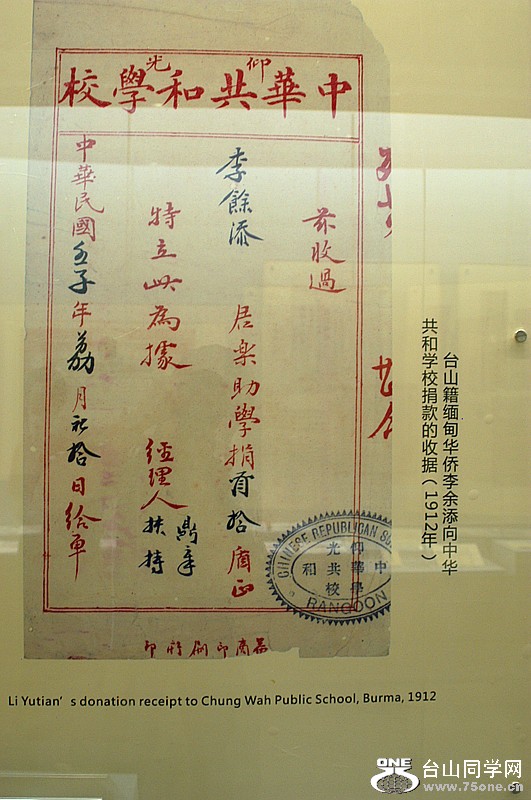 仰光
中華共和學校
茲收過
李餘添 居樂助學捐 拾 盾正
特立此為據 經理人 扶持
中華民國壬子年荔月初拾日給單
CHINESE REPUBLICAN
仰光
中華共和學校
RANGOON
台山籍缅甸华侨李余添向中华
共和学校捐款的收据（1912年）
Li Yutian's donation receipt to Chung Wah Public School, Burma, 1912
ONE 台山同学网
www.75one.cn